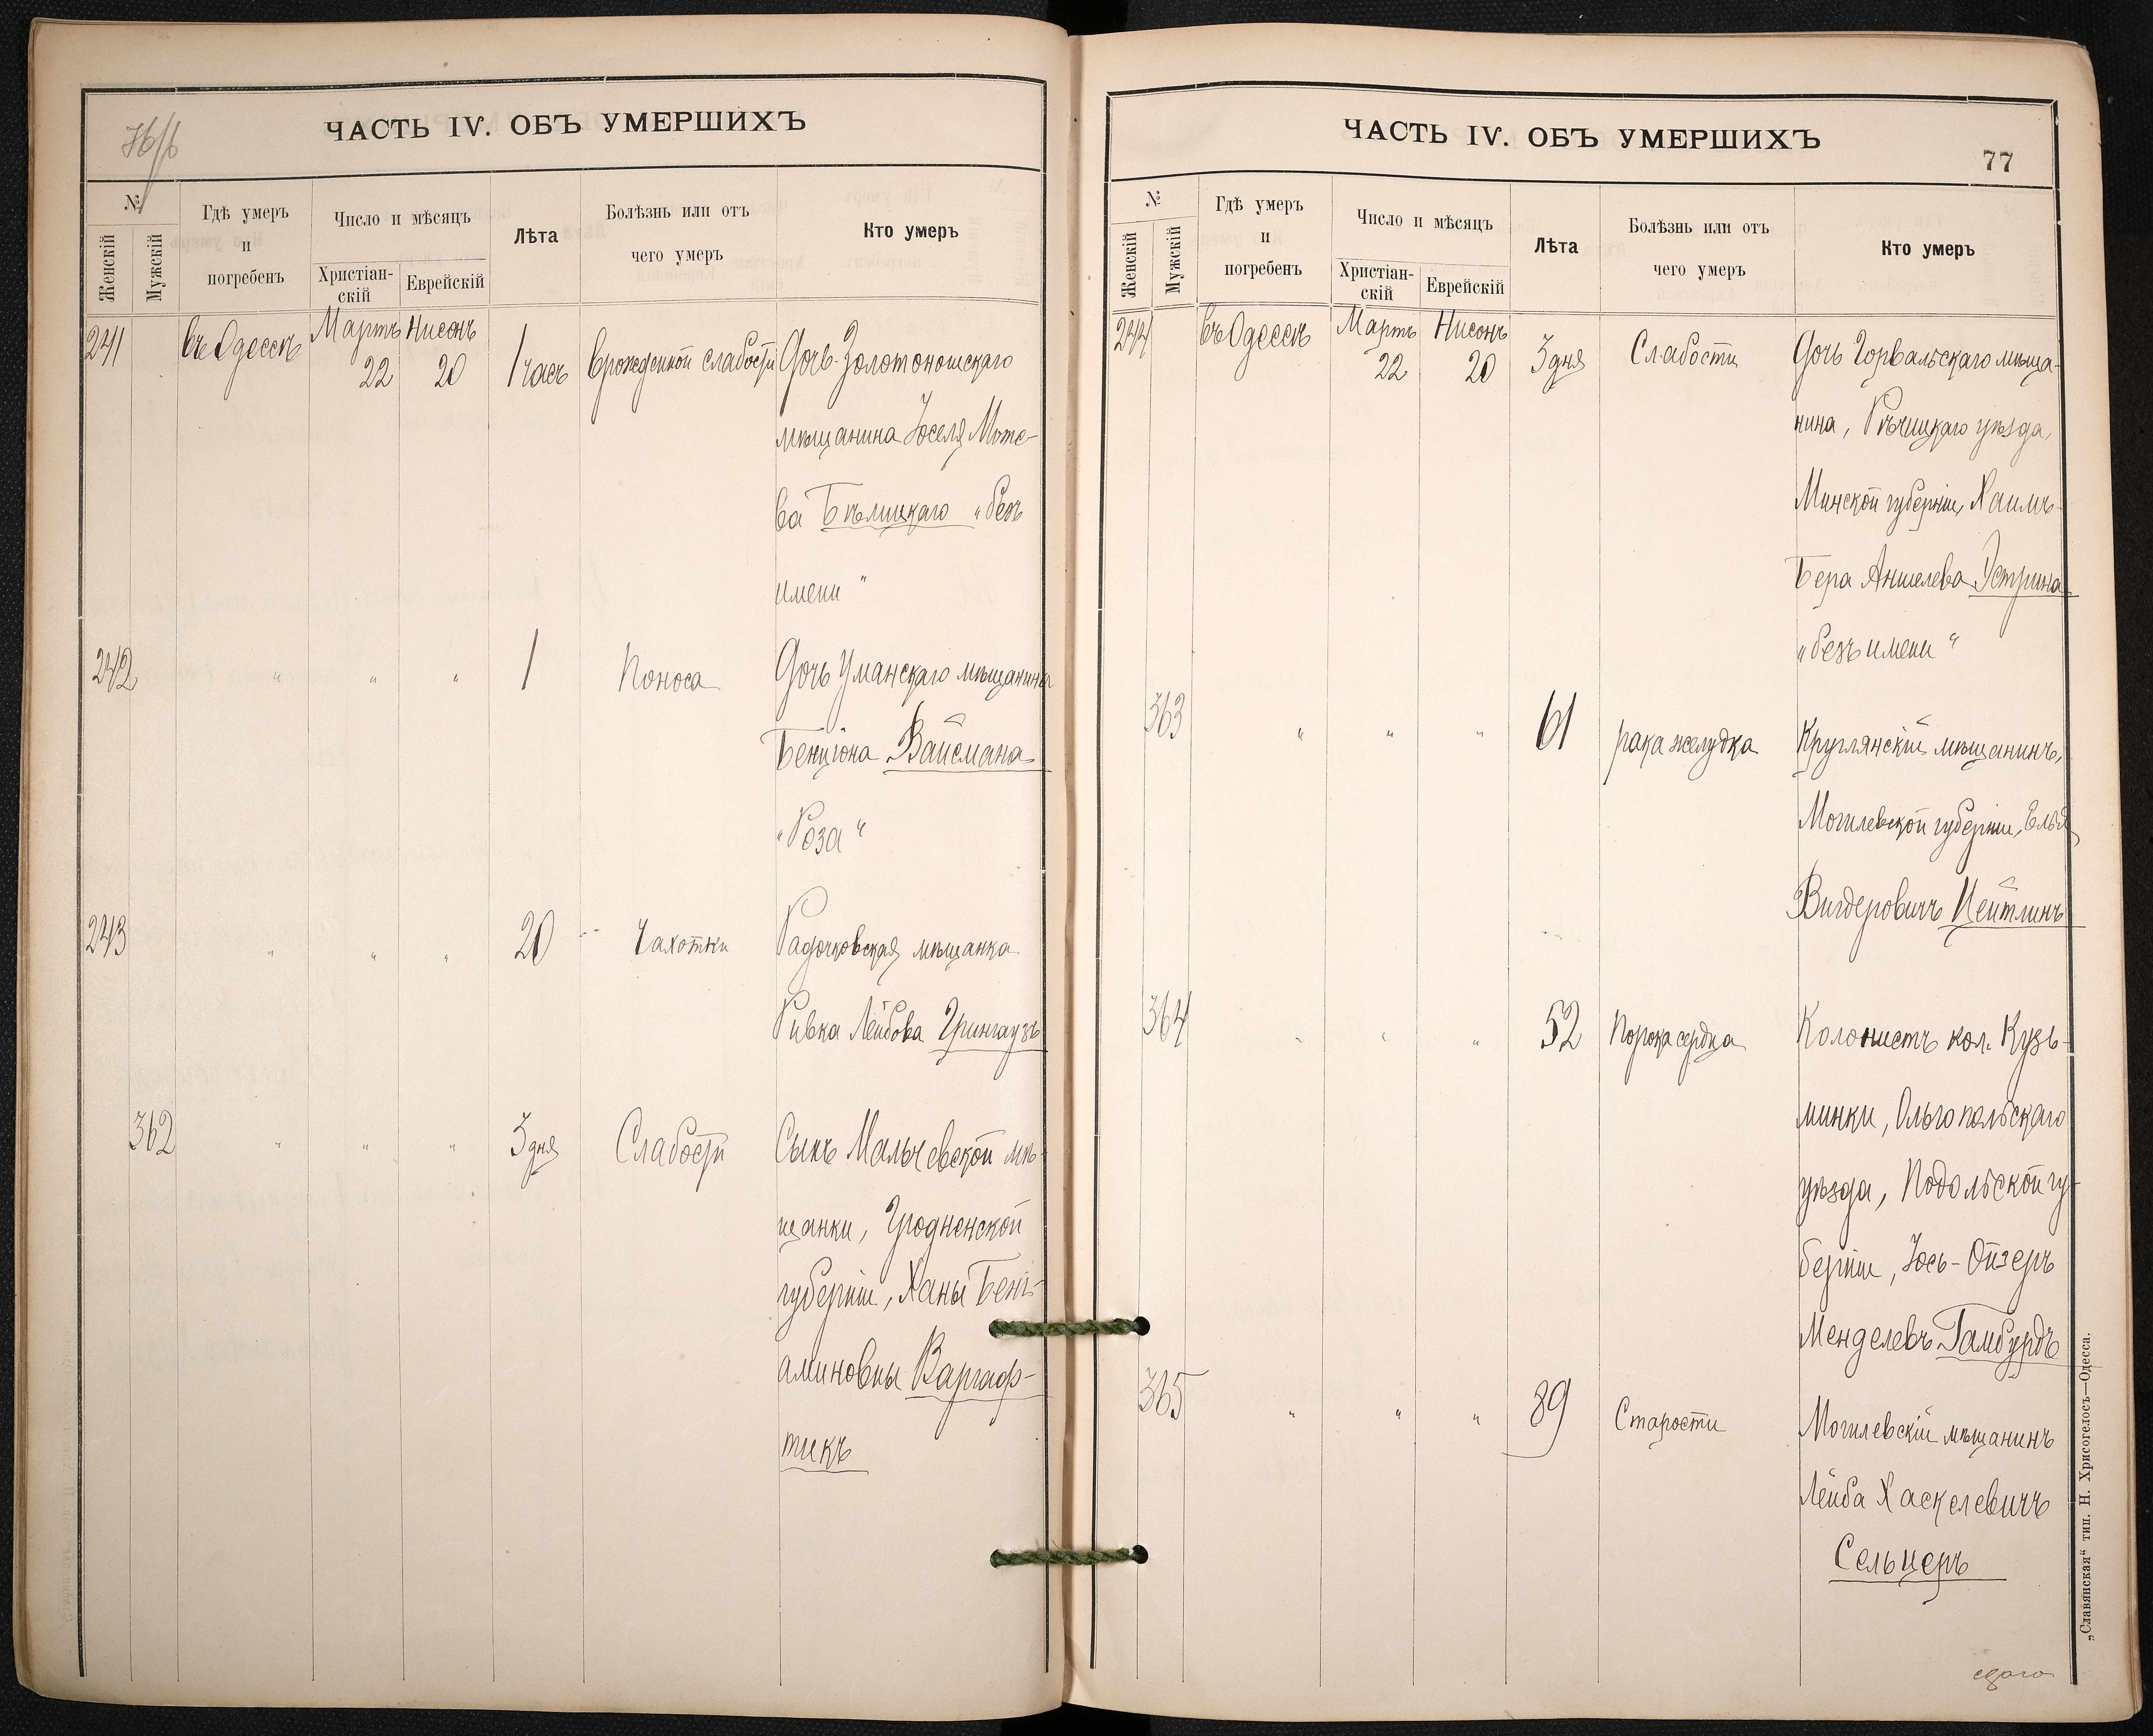 76/6
ЧАСТЬ IV. ОБЪ УМЕРШИХЪ
№
Женскій
Мужскій
Гдѣ умеръ
и
погребенъ
Число и мѣсяцъ
Христіан-
скій
Еврейскій
Лѣта
Болѣзнь или отъ
чего умеръ
Кто умеръ
241 въ Одессѣ Мартъ 22 Нисонъ 20 1 часъ Врожденной слабости Дочь Золотоношскаго
мѣщанина Іоселя Моте-
ва Бѣлицкаго „безъ
имени"
242 " " " 1 Поноса Дочь Уманскаго мѣщанина
Бенціона Вайсмана
"Роза"
243 " " " 20 Чахотки Радочковская мѣщанка
Ривка Лейбова Грингаузъ
362 " " " 3 дня Слабости Сынъ Мальчевской мѣ-
щанки, Гродненской
губерніи, Ханы Бені-
аминовны Варгаф-
тикъ
ЧАСТЬ IV. ОБЪ УМЕРШИХЪ
77
№
Женскій
Мужскій
Гдѣ умеръ
и
погребенъ
Число и мѣсяцъ
Христіан-
скій
Еврейскій
Лѣта
Болѣзнь или отъ
чего умеръ
Кто умеръ
244 въ Одессѣ Мартъ 22 Нисонъ 20 3 дня Слабости Дочь Горвальскаго мѣща-
нина, Рѣчицкаго уѣзда,
Минской губерніи, Хаимъ-
Бера Аншелева Устрина
„безъ имени"
363 " " " 61 рака желудка Круглянскій мѣщанинъ,
Могилевской губерніи, Элья
Вигдеровичъ Цейтлинъ
364 " " " 52 Порока сердца Колонистъ кол. Кузь-
минки, Ольгопольскаго
уѣзда, Подольской гу-
берніи, Іось-Ойзеръ
Менделевъ Гамбурдъ
365 " " " 89 Старости Могилевскій мѣщанинъ
Лейба Хаскелевичъ
Сельцеръ
„Славянская" тип. Н. Хрисогелосъ—Одесса.